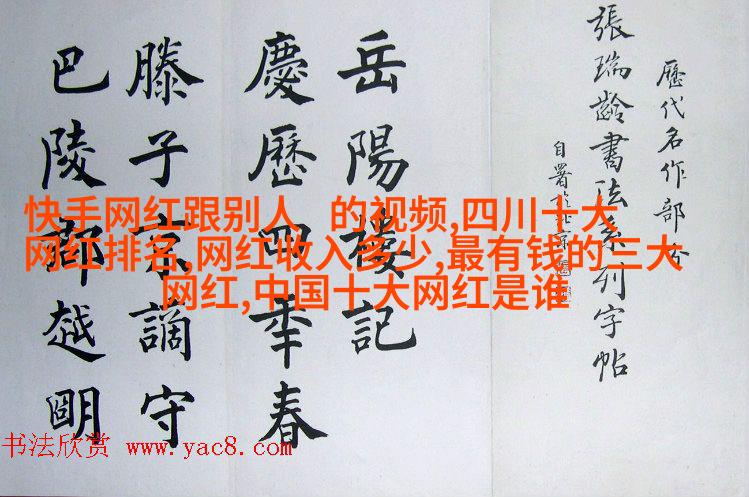 歷代名作部分
張瑞齡書法系列字帖
自署於北京
岳陽樓記
慶歷四年春
滕子京謫守
巴陵郡越朙
快手网红跟别人 的视频,四川十大
网红排名,网红收入多少,最有钱的三大
网红,中国十大网红是谁
书法欣赏 www.yac8.com